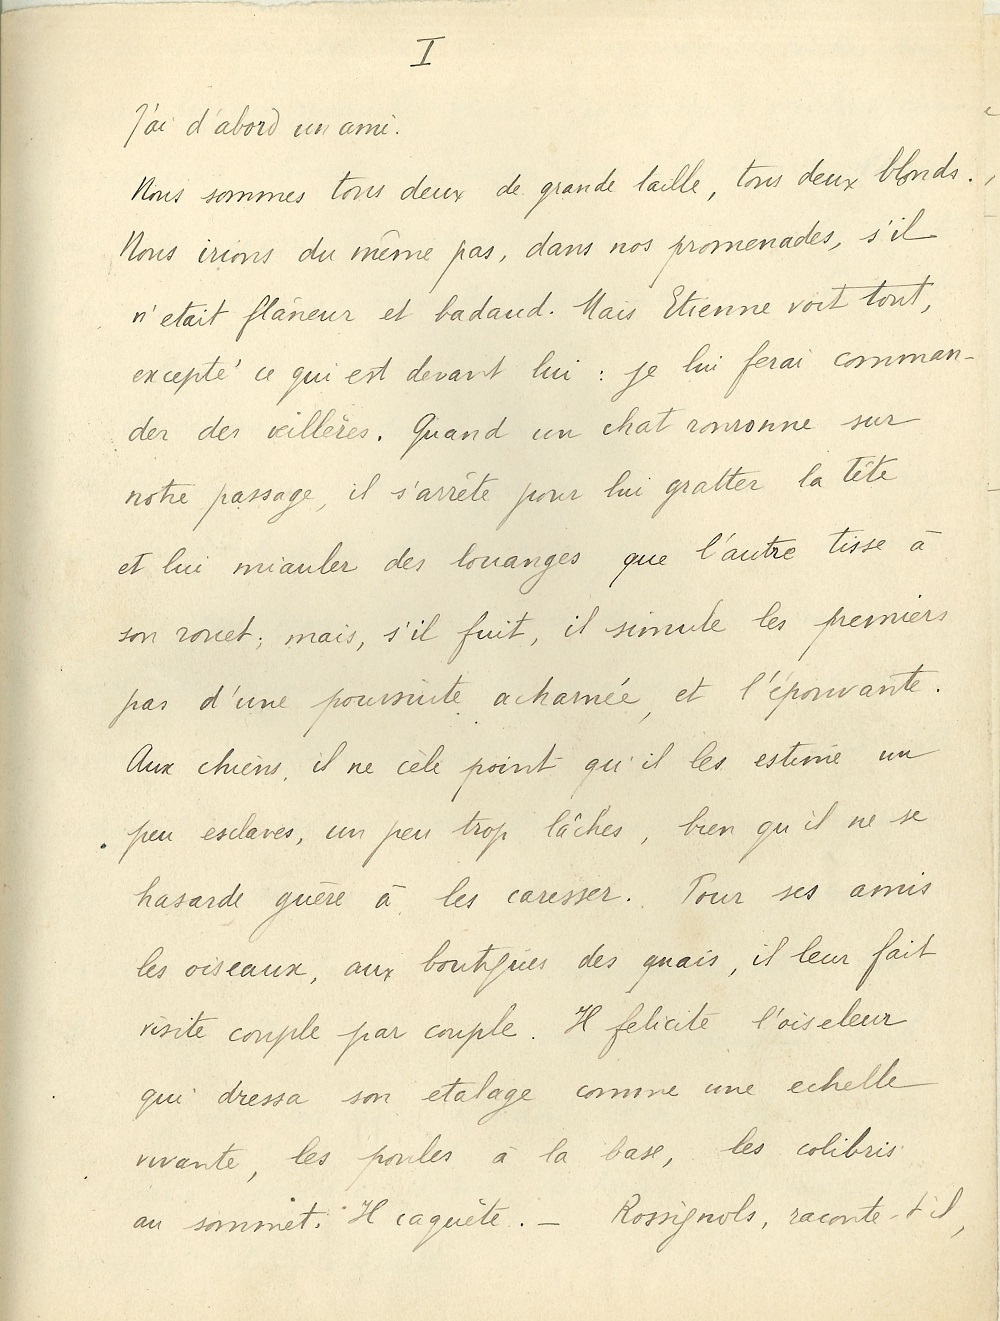 I
J'ai d'abord un ami.
Nous sommes tous deux de grande taille, tous deux blonds.
Nous irions du même pas, dans nos promenades, s'il
n'etait flâneur et badaud. Mais Etienne voit tout,
excepté ce qui est devant lui : je lui ferai comman-
der des œillères. Quand un chat ronronne sur
notre passage, il s'arrête pour lui gratter la tête
et lui miauler des louanges que l'autre tisse à
son rouet; mais, s'il fuit, il simule les premiers
pas d'une poursuite acharnée, et l'épouvante.
Aux chiens, il ne cèle point qu'il les estime un
peu esclaves, un peu trop lâches, bien qu'il ne se
hasarde guère à les caresser. Pour ses amis
les oiseaux, aux boutiques des quais, il leur fait
visite couple par couple. Il felicite l'oiseleur
qui dressa son etalage comme une echelle
vivante, les poules à la base, les colibris
au sommet. Il caquète. — Rossignols, raconte-t-il,